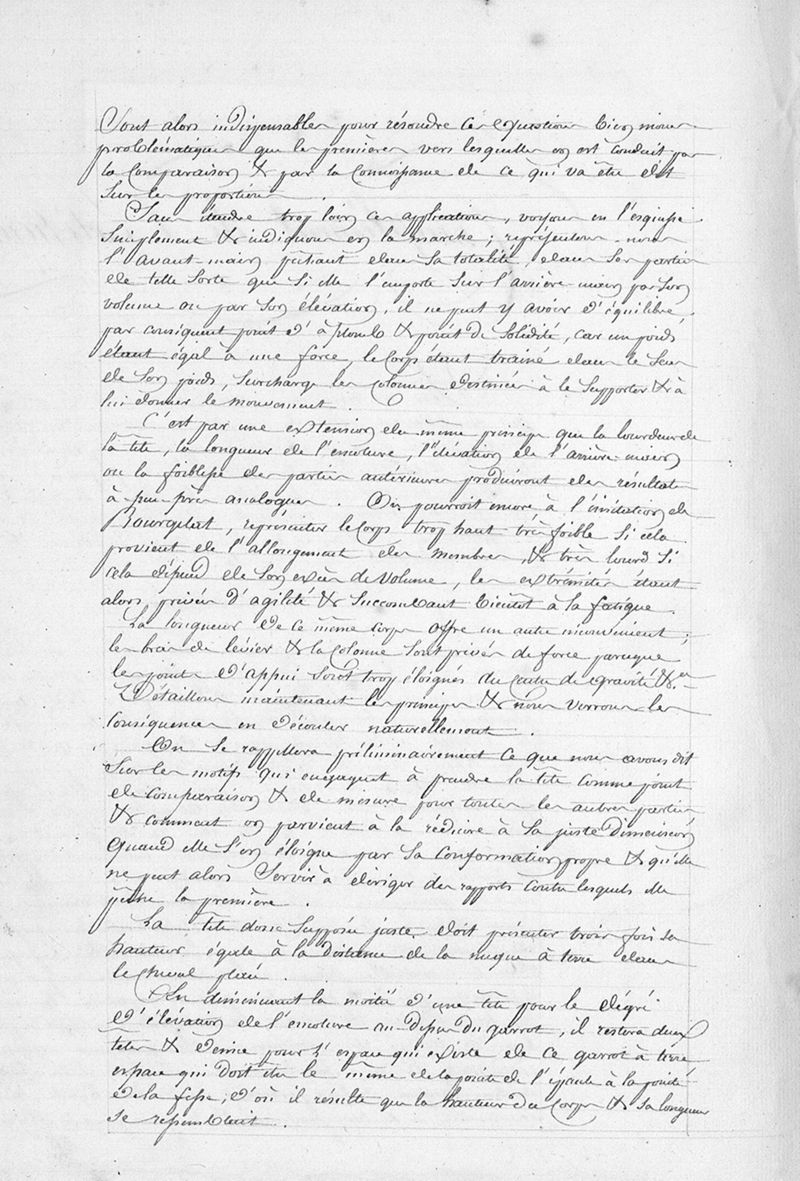 Sont alors indispensables pour résoudre ces questions bien moins
problématiques que les premières vers lesquelles on est conduit par
la Comparaison & par la Connoissance de ce qui va être dit
Sur les proportions.
Sans étendre trop loin ces applications, voyons en l'esquisse
Simplement & indiquons en la marche; représentons-nous
l'avant-main péchant dans sa totalité, dans ses parties
de telle sorte que si elle l'emporte sur l'arrière-main par son
volume ou par son élévation, il ne peut y avoir d'équilibre,
par conséquent point d'à plomb & point de solidité, car un poids
étant égal à une force, le Corps étant trainé dans le sens
de son poids, surcharge les Colonnes destinées à le supporter & à
lui donner le mouvement.
C'est par une extension du même principe que la lourdeur de
la tête, la longueur de l'encolure, l'élévation de l'arrière-main
ou la foiblesse des parties antérieures produiront des résultats
à peu près analogues. On pourroit encore à l'imitation de
Bourgelat, représenter le Corps trop haut très foible si cela
provient de l'allongement des membres, & très lourd si
cela dépend de son excès de volume, les extrémités étant
alors privées d'agilité & succombant bientôt à la fatigue.
La longueur de ce même corps offre un autre inconvénient;
les bras de lévier & la colonne sont privés de force parceque
les points d'appui sont trop éloignés du centre de gravité &.ca
Détaillons maintenant les principes & nous verrons les
conséquences en découler naturellement.
On se rappellera préliminairement ce que nous avons dit
Sur les motifs qui engagent à prendre la tête comme point
de comparaison & de mesure pour toutes les autres parties
& comment on parvient à la réduire à sa juste dimension
quand elle s'en éloigne par sa conformation propre & qu'elle
ne peut alors servir à diriger des rapports contre lesquels elle
pèche la première.
La tête donc supposée juste, doit présenter trois fois sa
hauteur égale à la distance de la nuque à terre dans
le cheval placé.
En diminuant la moitié d'une tête pour le dégré
d'élévation de l'encolure au-dessus du garrot, il restera deux
têtes & demie pour l'espace qui existe de ce garrot à terre
espace qui doit être le même de la pointe de l'épaule à la pointe
de la fesse; d'où il résulte que la hauteur du Corps & sa longueur
se ressemblent.